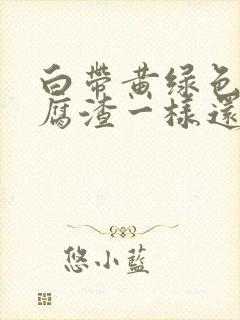 白帶黃绿色
腐渣一樣還
悠小藍